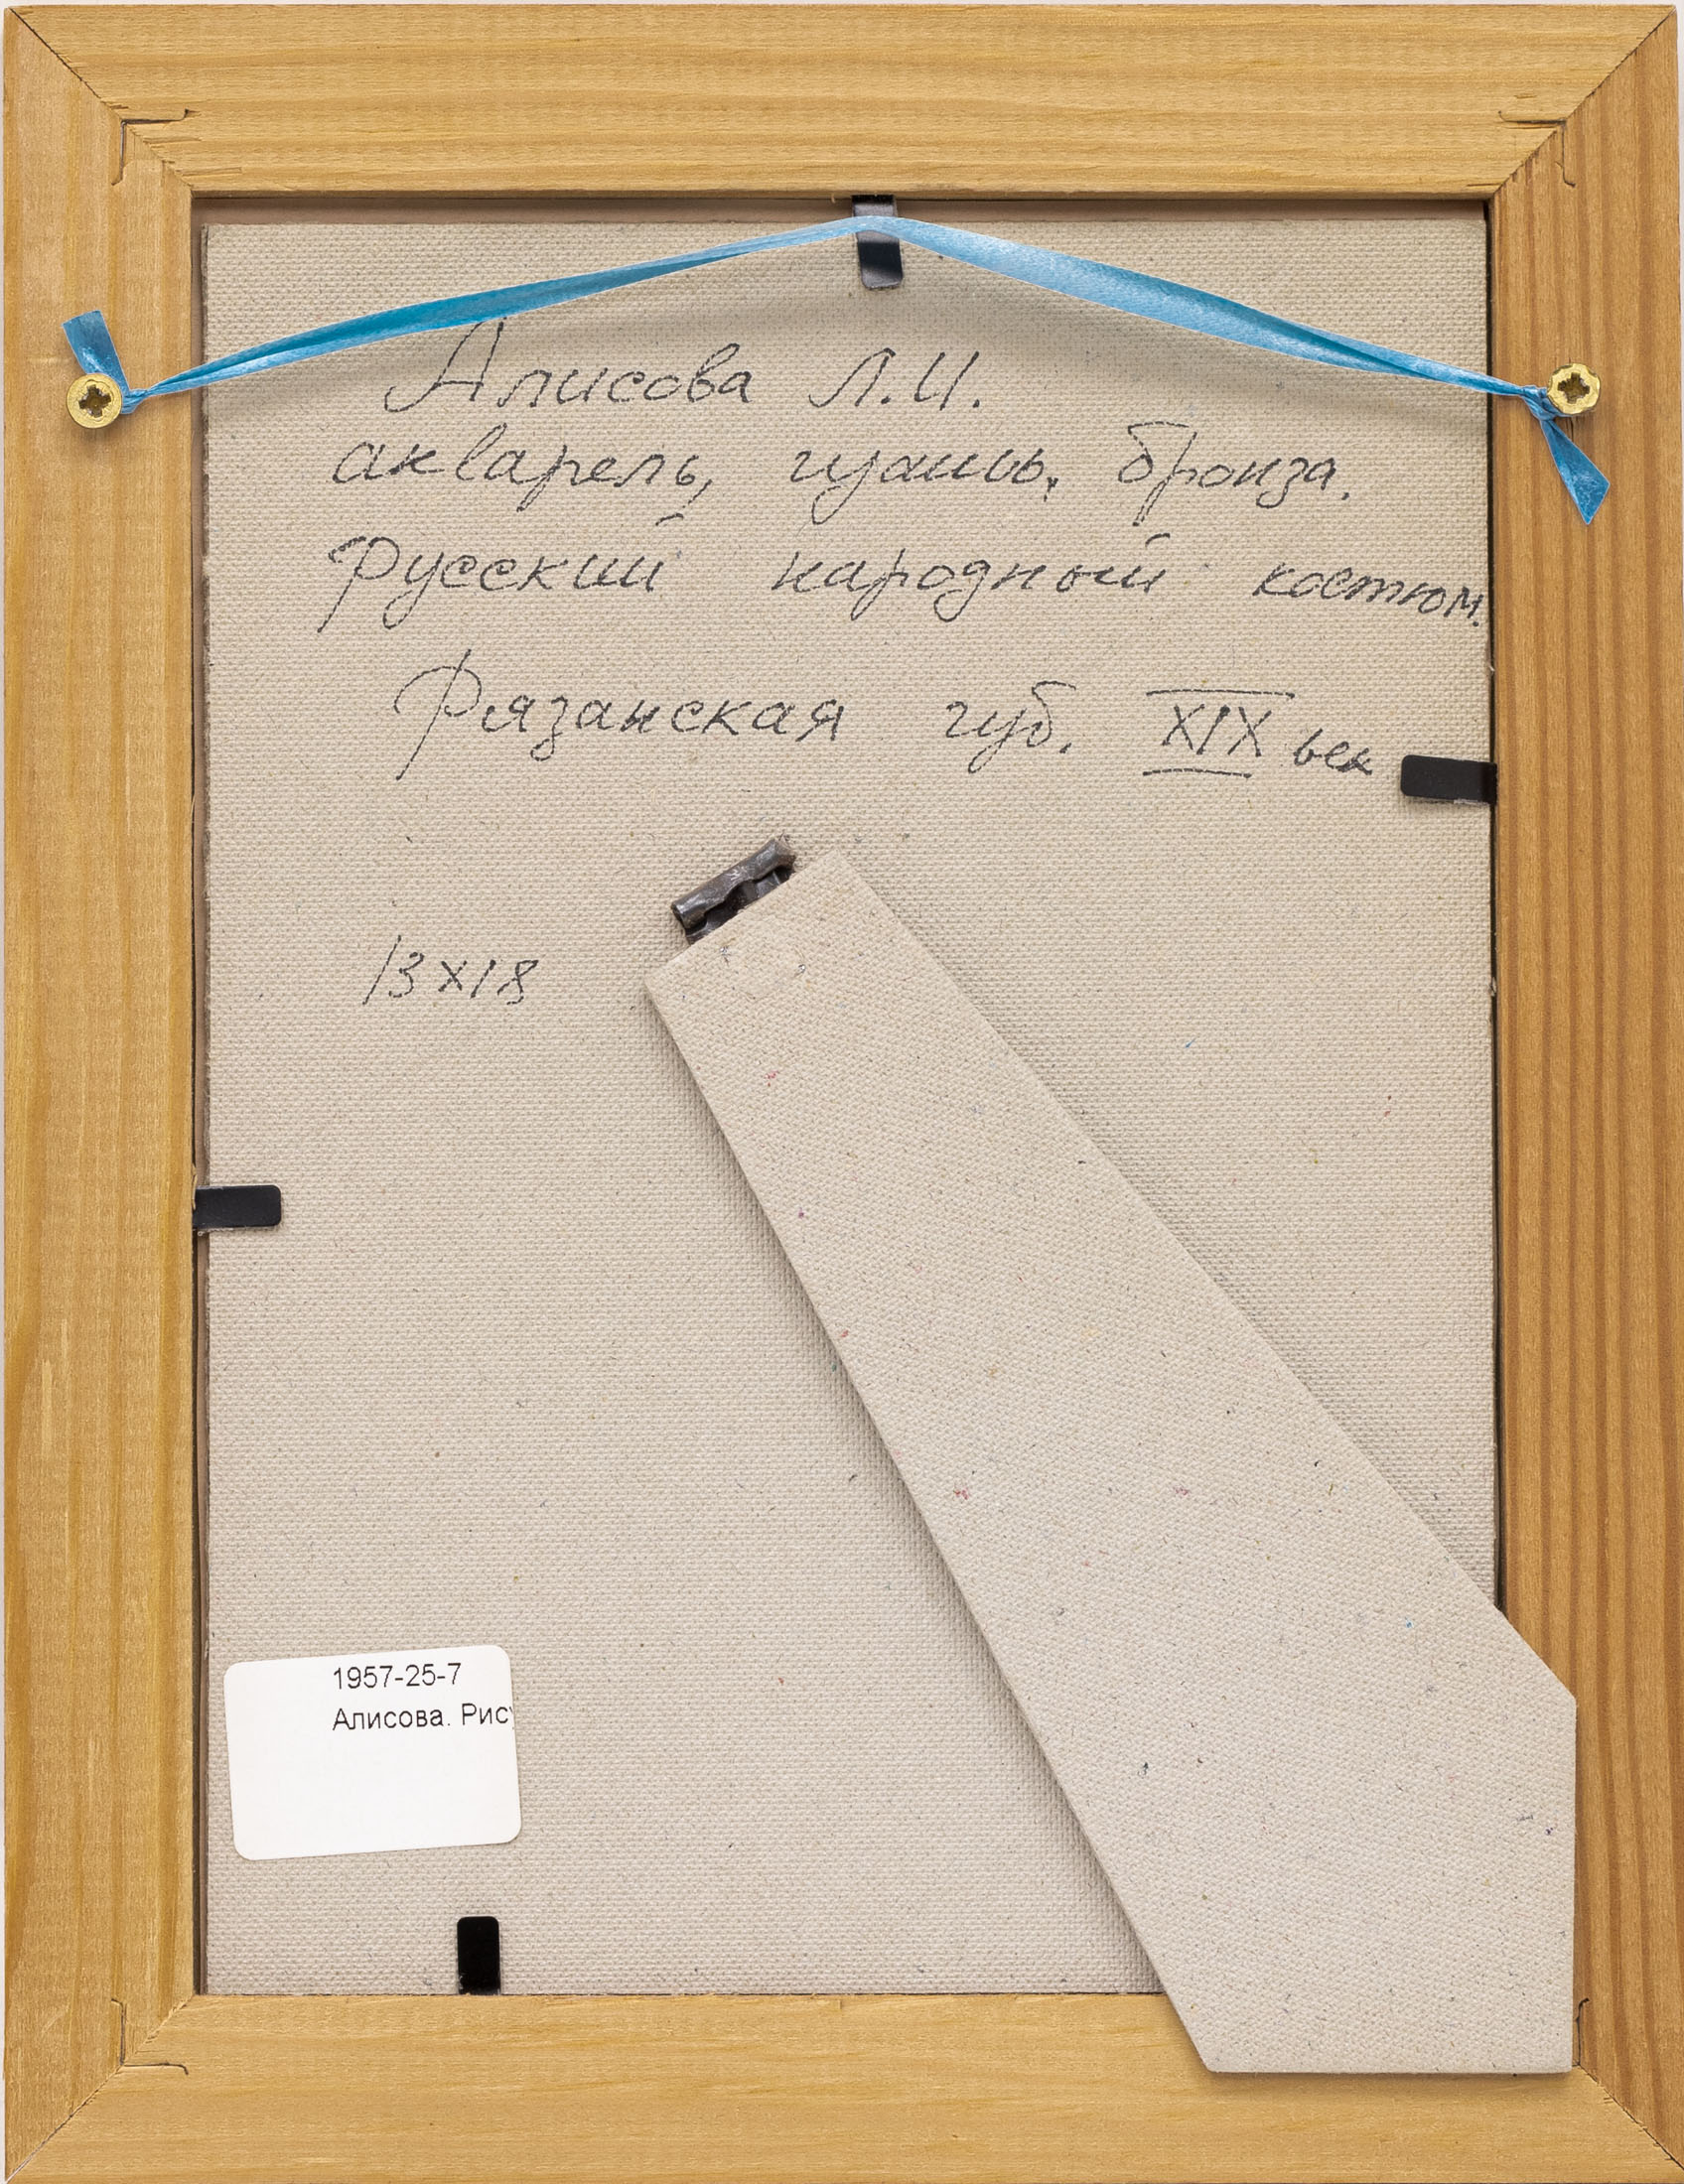 Алисова Л.И.
акварель, гуашь, бронза.
Русский народный костюм.
Рязанская губ. XIX век
13х18
1957-25-7
Алисова. Рису